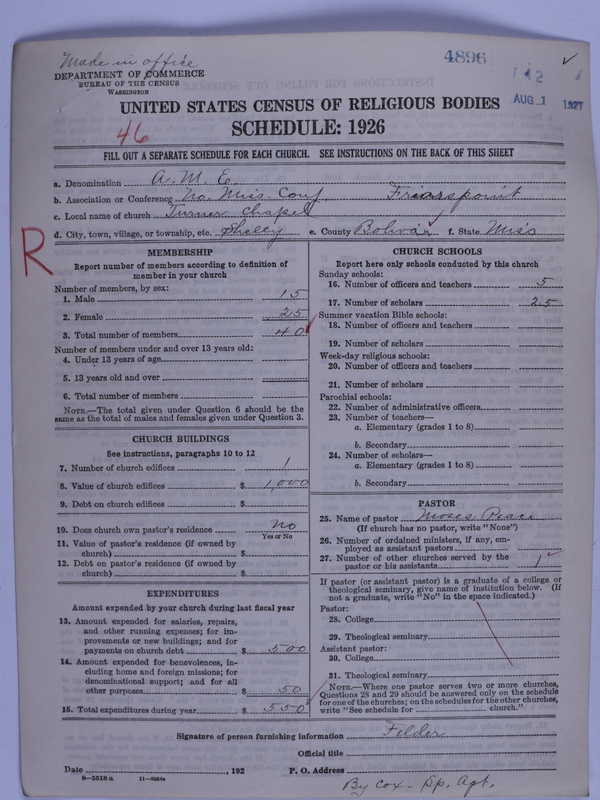 Made in office
4896
✓
DEPARTMENT OF COMMERCE
BUREAU OF THE CENSUS
WASHINGTON
AUG 1 1927
UNITED STATES CENSUS OF RELIGIOUS BODIES
SCHEDULE: 1926
46
FILL OUT A SEPARATE SCHEDULE FOR EACH CHURCH. SEE INSTRUCTIONS ON THE BACK OF THIS SHEET
a. Denomination A. M. E.
b. Association or Conference No. Miss. Conf. Friarspoint
c. Local name of church Turner Chapel
d. City, town, village, or township, etc. Shelby e. County Bolivar f. State Miss
R
MEMBERSHIP
Report number of members according to definition of member in your church
Number of members, by sex:
1. Male 15
2. Female 25
3. Total number of members 40
Number of members under and over 13 years old:
4. Under 13 years of age
5. 13 years old and over
6. Total number of members
NOTE.—The total given under Question 6 should be the same as the total of males and females given under Question 3.
CHURCH BUILDINGS
See instructions, paragraphs 10 to 12
7. Number of church edifices 1
8. Value of church edifices $ 1,000
9. Debt on church edifices $
10. Does church own pastor's residence No
Yes or No
11. Value of pastor's residence (if owned by church) $
12. Debt on pastor's residence (if owned by church) $
EXPENDITURES
Amount expended by your church during last fiscal year
13. Amount expended for salaries, repairs, and other running expenses; for improvements or new buildings; and for payments on church debt $ 500
14. Amount expended for benevolences, including home and foreign missions; for denominational support; and for all other purposes $ 50
15. Total expenditures during year $ 550
CHURCH SCHOOLS
Report here only schools conducted by this church
Sunday schools:
16. Number of officers and teachers 5
17. Number of scholars 25
Summer vacation Bible schools:
18. Number of officers and teachers
19. Number of scholars
Week-day religious schools:
20. Number of officers and teachers
21. Number of scholars
Parochial schools:
22. Number of administrative officers
23. Number of teachers—
a. Elementary (grades 1 to 8)
b. Secondary
24. Number of scholars—
a. Elementary (grades 1 to 8)
b. Secondary
PASTOR
25. Name of pastor Moses Peace
(If church has no pastor, write "None")
26. Number of ordained ministers, if any, employed as assistant pastors
27. Number of other churches served by the pastor or his assistants 1
If pastor (or assistant pastor) is a graduate of a college or theological seminary, give name of institution below. (If not a graduate, write "No" in the space indicated.)
Pastor:
28. College
29. Theological seminary
Assistant pastor:
30. College
31. Theological seminary
NOTE.—Where one pastor serves two or more churches, Questions 28 and 29 should be answered only on the schedule for one of the churches; on the schedules for the other churches, write "See schedule for church."
Signature of person furnishing information Felder
Official title
Date , 192 P. O. Address
8—5318a 11—9264a
By Cox - Sp. Agt.